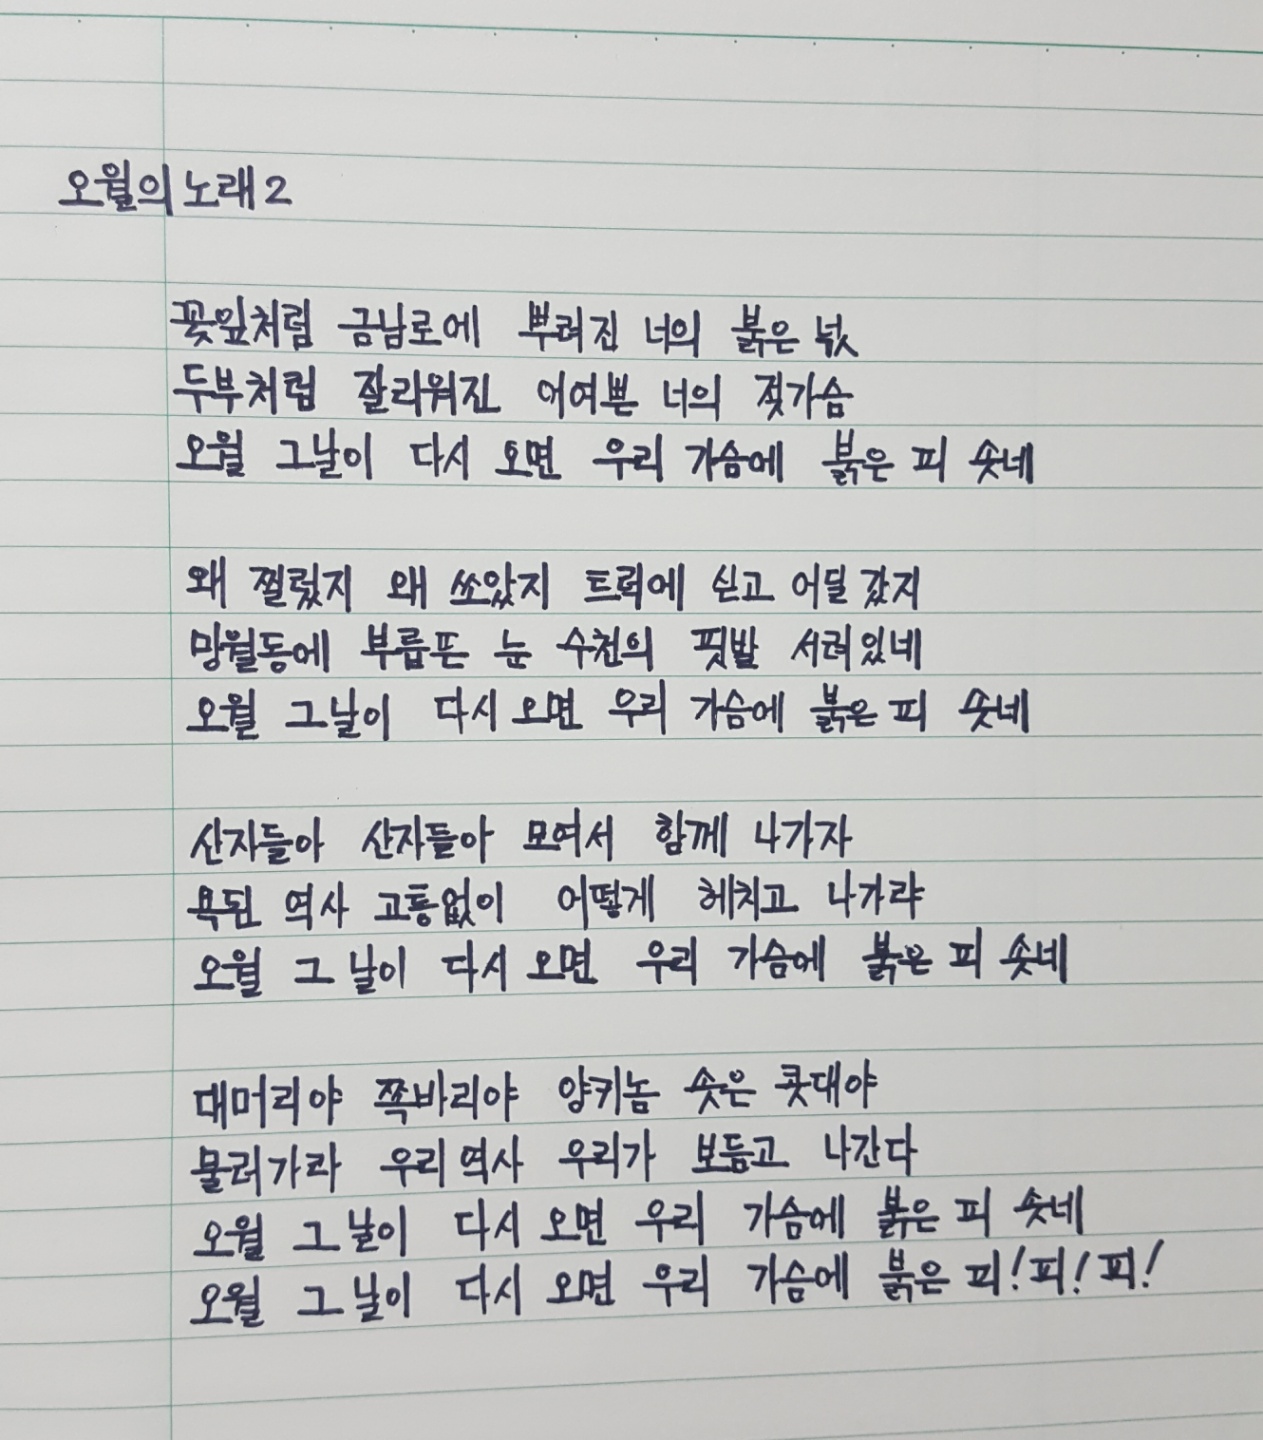 오월의 노래2
꽃잎처럼 금남로에 뿌려진 너의 붉은 넋
두부처럼 잘리워진 어여쁜 너의 젖가슴
오월 그날이 다시 오면 우리 가슴에 붉은 피 솟네
왜 찔렀지 왜 쏘았지 트럭에 싣고 어딜 갔지
망월동에 부릅뜬 눈 수천의 핏발 서려있네
오월 그날이 다시 오면 우리 가슴에 붉은 피 솟네
산자들아 산자들아 모여서 함께 나가자
욕된 역사 고통없이 어떻게 헤치고 나가랴
오월 그날이 다시 오면 우리 가슴에 붉은 피 솟네
대머리야 쪽바리야 양키놈 솟은 콧대야
물러가라 우리 역사 우리가 보듬고 나간다
오월 그날이 다시 오면 우리 가슴에 붉은 피 솟네
오월 그날이 다시 오면 우리 가슴에 붉은 피! 피! 피!